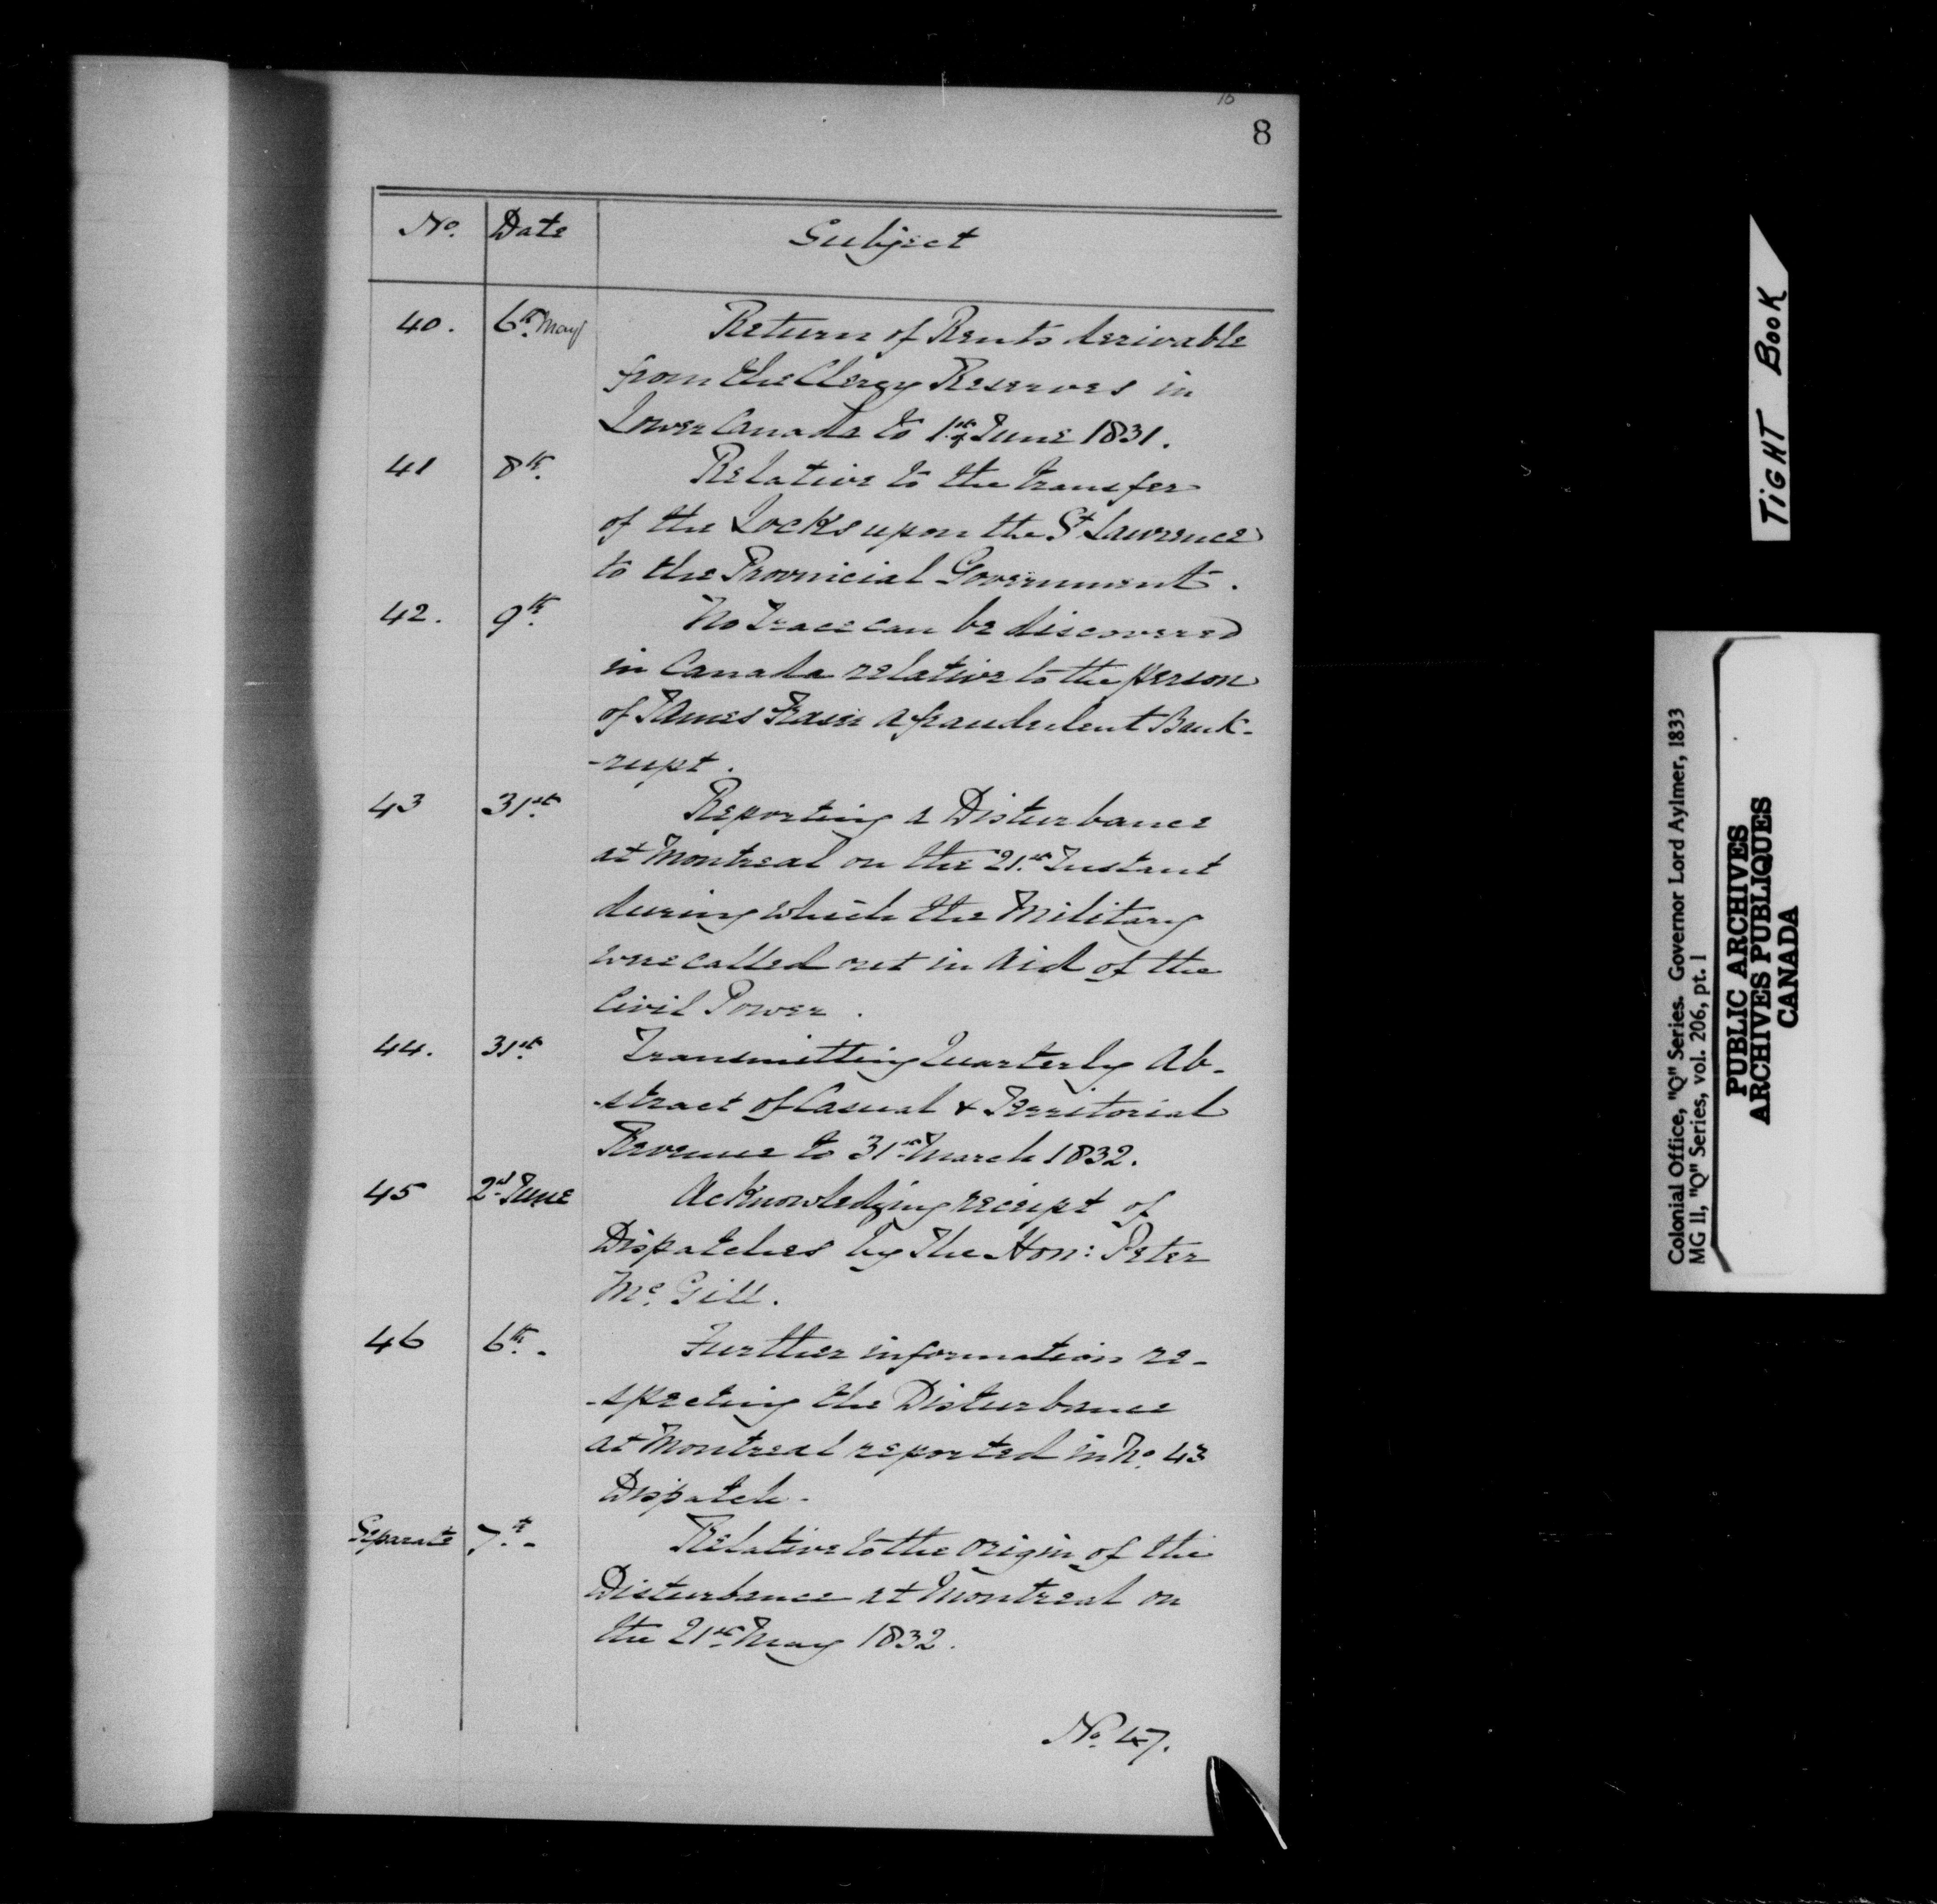 8
No. Date Subject
40. 6th May Return of Rents derivable
from the Clergy Reserves in
Lower Canada to 1st June 1831.
41 8th. Relative to the transfer
of the Locks upon the St Lawrence
to the Provincial Government.
42. 9th. No Trace can be discovered
in Canada relative to the person
of James a fraudulent Bank-
-rupt.
43 31st. Reporting a Disturbance
at Montreal on the 21st. Instant
during which the Military
were called out in Aid of the
Civil Power.
44. 31st. Transmitting Quarterly Ab-
-stract of Casual & Territorial
Revenue to 31st March 1832.
45 2d June Acknowledging receipt of
Dispatches by The Hon: Peter
Mc. Gill.
46 6th. - Further information re-
-specting the Disturbance
at Montreal reported in No. 43
Dispatch.
Separate 7th. - Relative to the origin of the
Disturbance at Montreal on
the 21st May 1832.
No. 47.
TIGHT BOOK
Colonial Office, "Q" Series. Governor Lord Aylmer, 1833
MG 11, "Q" Series, vol. 206, pt. 1
PUBLIC ARCHIVES
ARCHIVES PUBLIQUES
CANADA